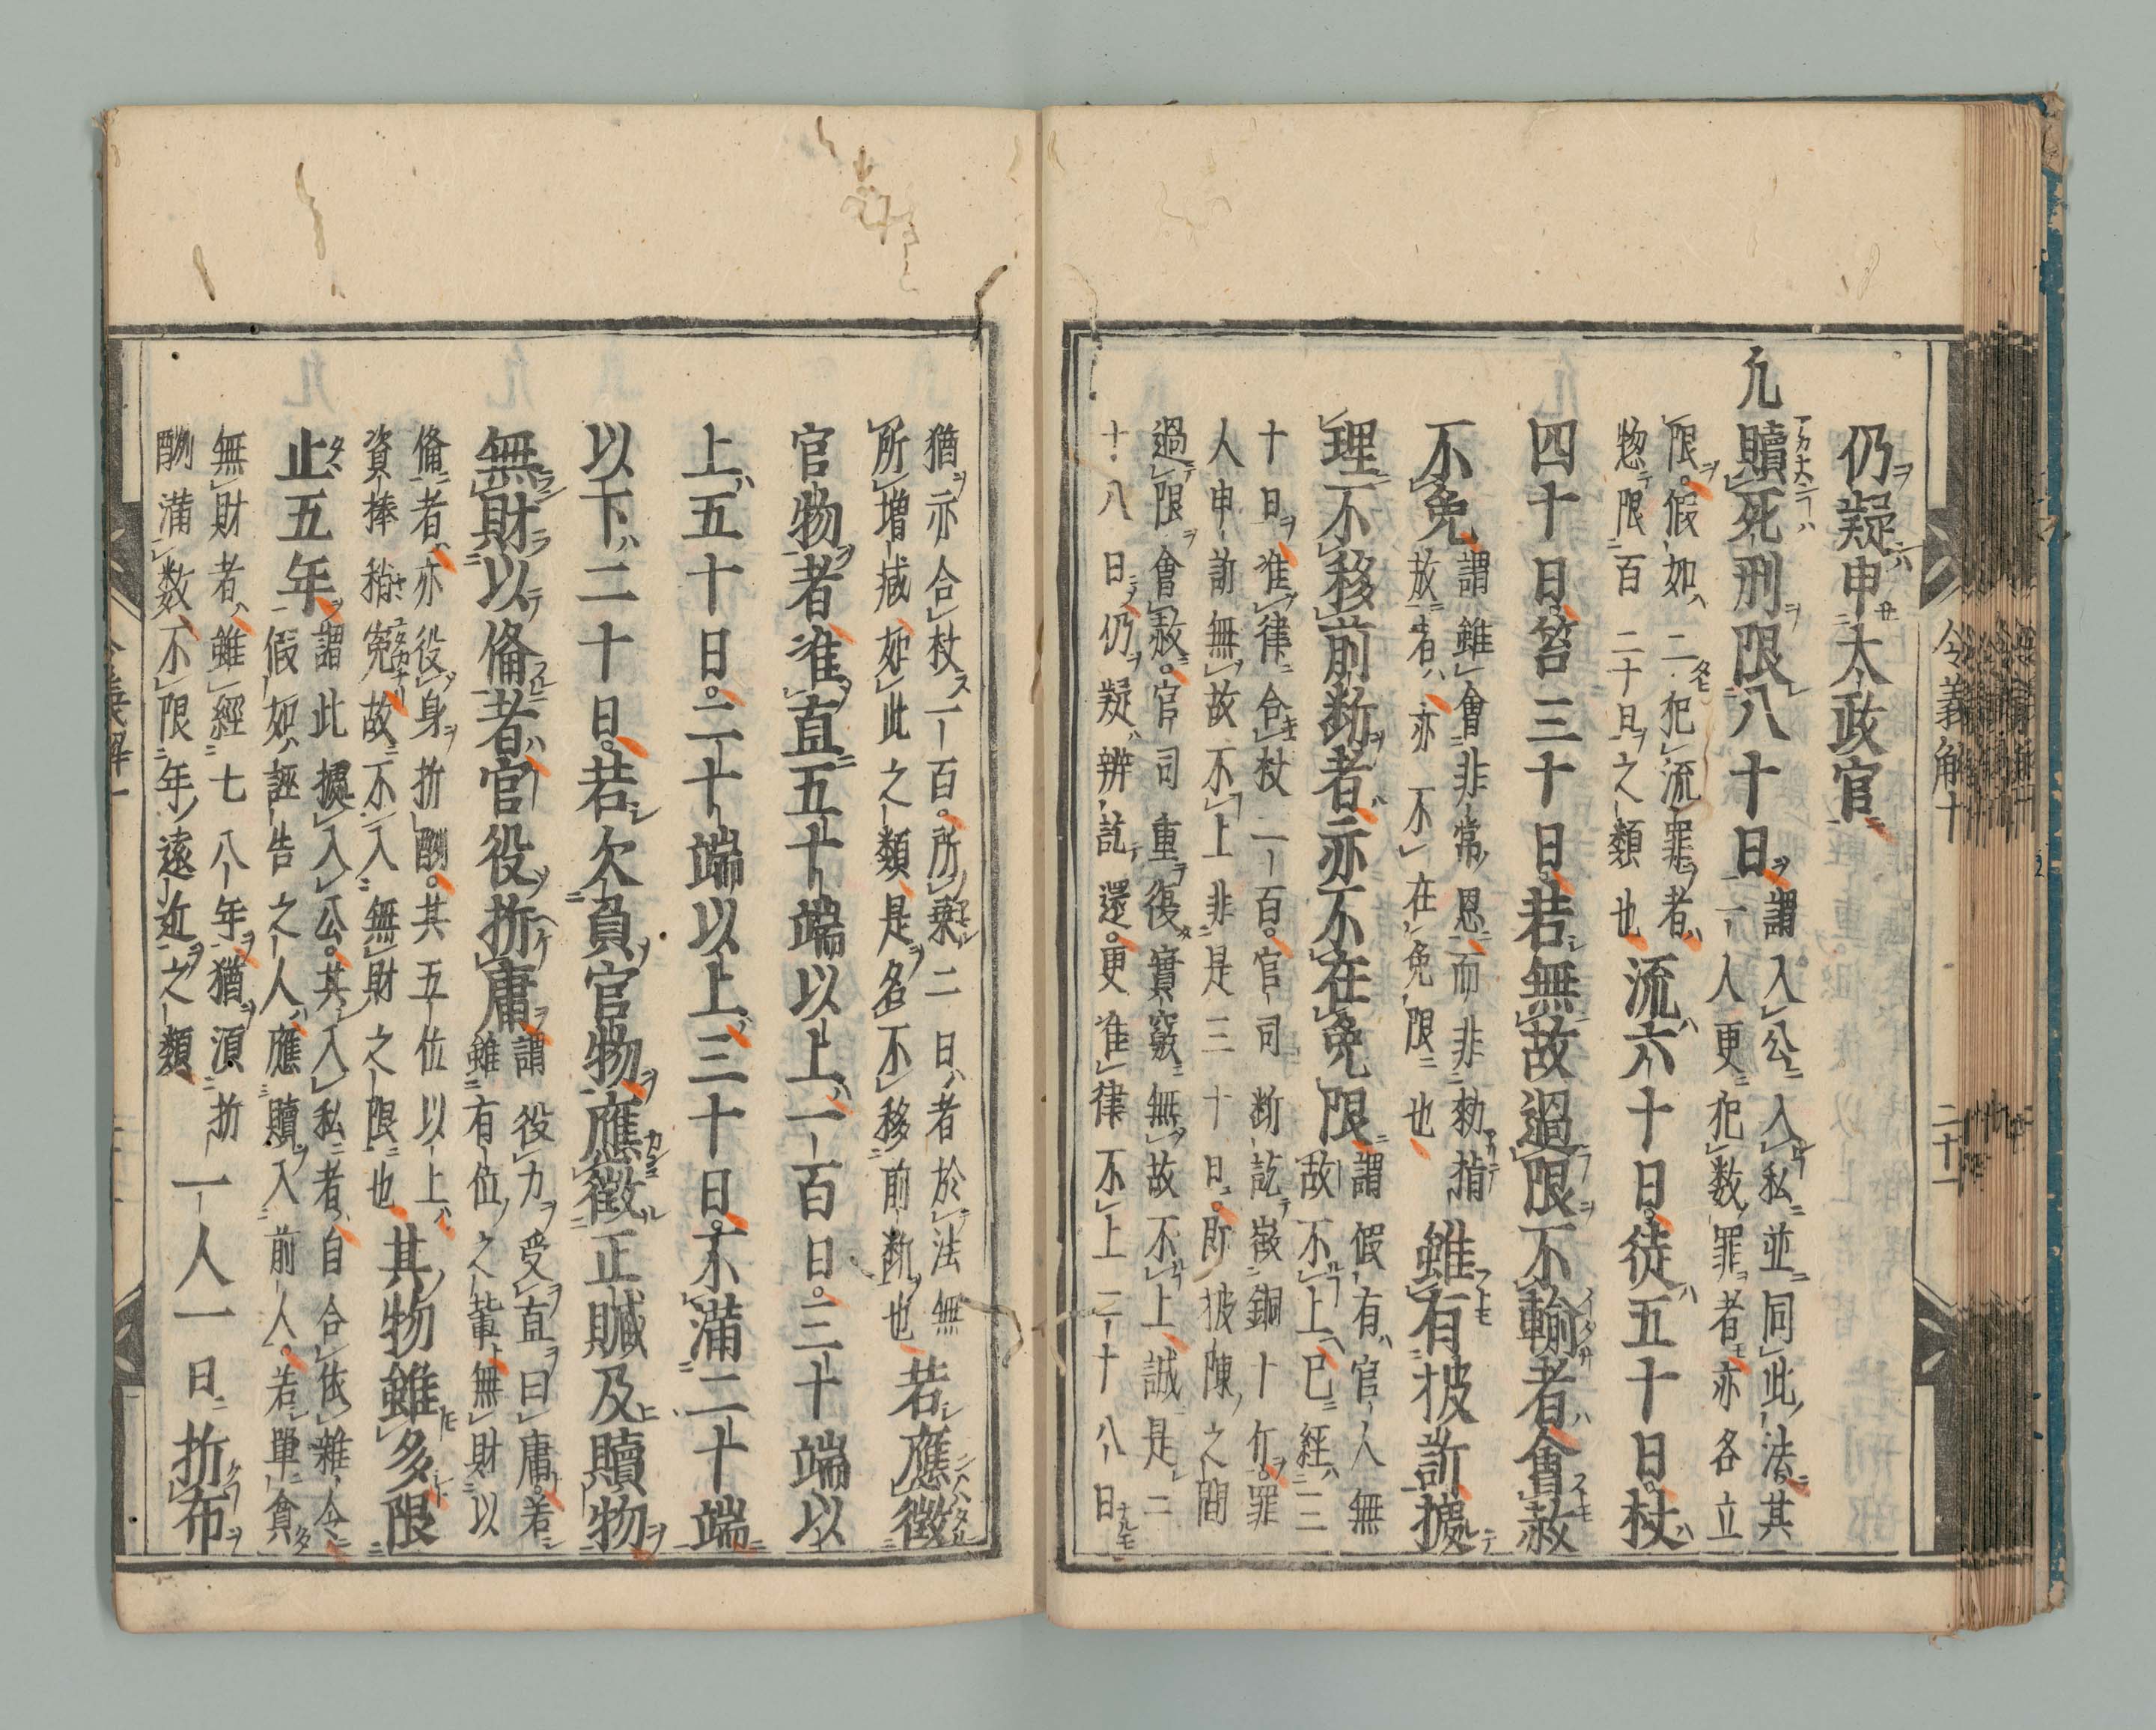 令義解十
二十一
仍疑申太政官
凢贖死刑限八十日
謂入公入私並同此法其
限假如二犯流罪者
一人更犯数罪者亦各立
惣限百二十日之類也
流六十日徒五十日杖
四十日笞三十日若無故過限不輸者會赦
不免
謂雖會非常恩而非勅指
放者亦不在免限也
雖有披訴據
理不移前断者亦不在免限
謂假有官人無
故不上已經三
十日准律合杖一百官司断訖徴銅十斤罪
人申訴無故不上非是三十日即披陳之間
過限會赦官司重復實竅無故不上誠是二
十八日仍疑辨訖還更准律不上二十八日
猶亦合杖一百所乗二日者於法無
所増减如此之類是名不移前断也
若應徴
官物者准直五十端以上一百日三十端以
上五十日二十端以上三十日不滿二十端
以下二十日若欠負官物應徴正贓及贖物
無財以備者官役折庸
謂役力受直曰庸若
雖有位之輩無財以
備者亦役身折酬其五位以上
資捧稍寃故不入無財之限也
其物雖多限
止五年
謂此據入公其入私者自合依雜令
假如誣告之人應贖入前人若單貪
無財者雖經七八年猶須折
酬滿数不限年遠近之類
一人一日折布